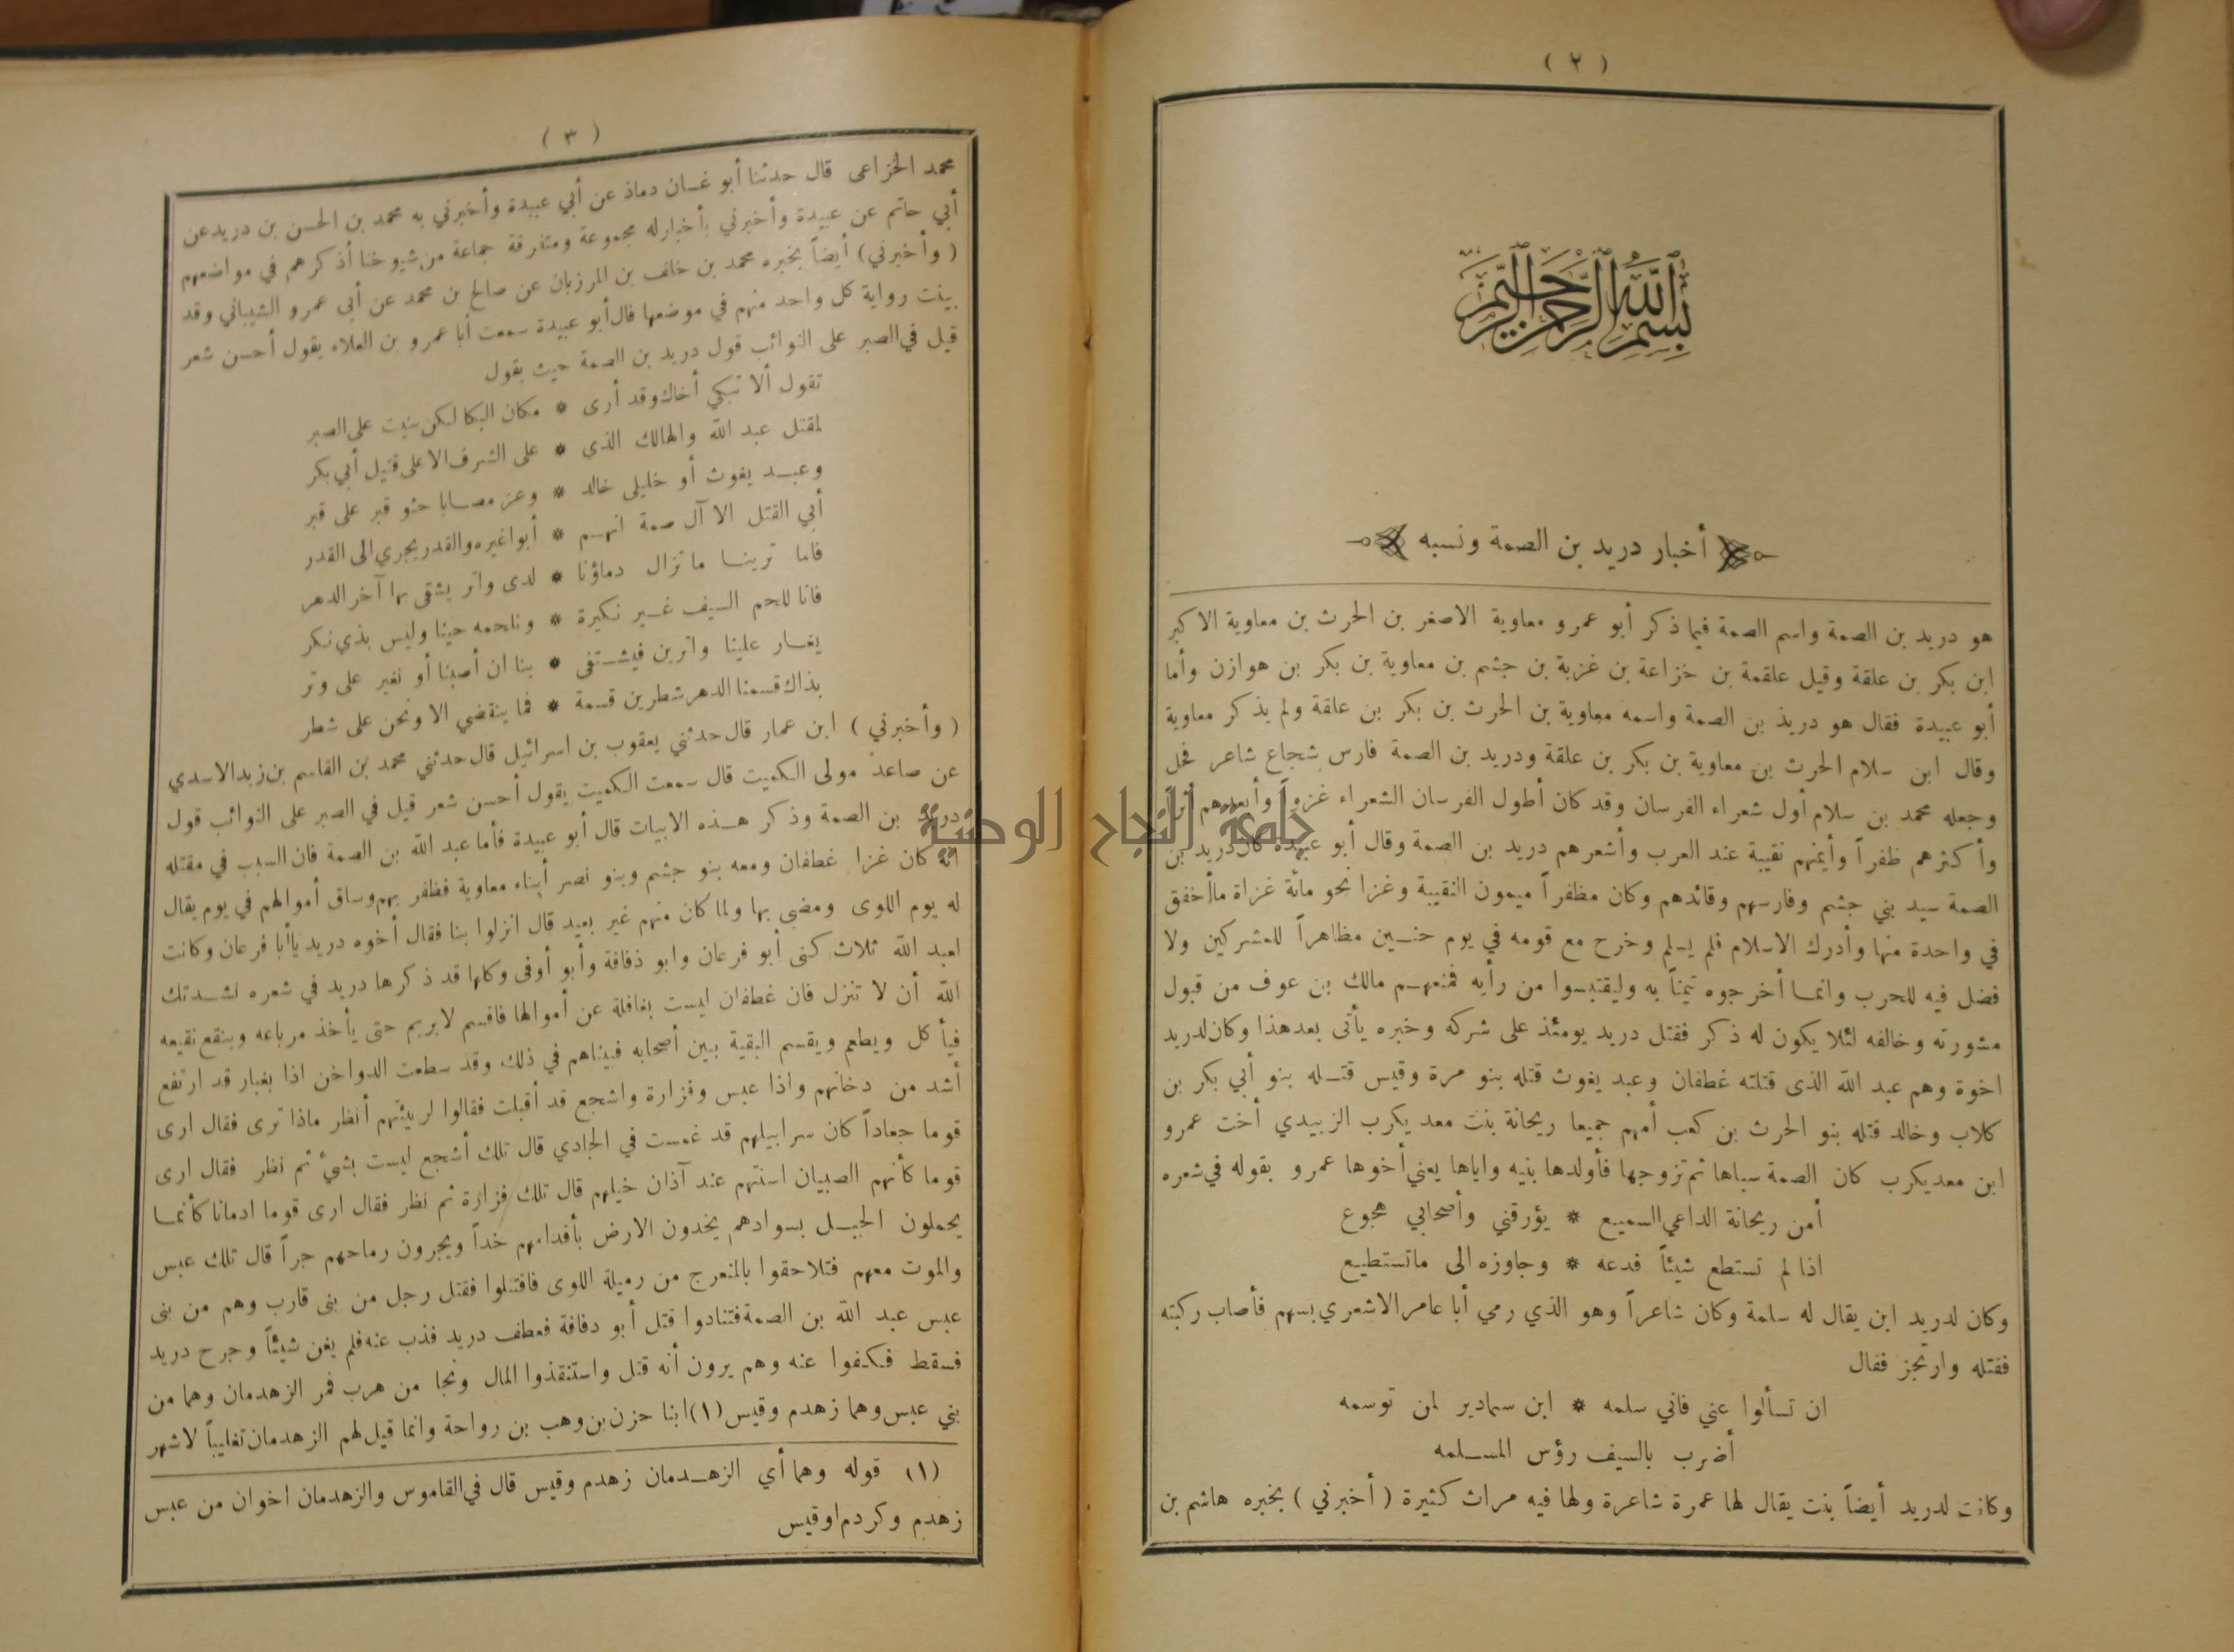 ( ٢ )
بسم الله الرحمن الرحيم
أخبار دريد بن الصمة ونسبه
هو دريد بن الصمة واسم الصمة فيما ذكر أبو عمرو معاوية الاصغر بن الحرث بن معاوية الاكبر
ابن بكر بن علقة وقيل علقمة بن خزاعة بن غزية بن جشم بن معاوية بن بكر بن هوازن وأما
أبو عبيدة فقال هو دريد بن الصمة واسمه معاوية بن الحرث بن بكر بن علقة ولم يذكر معاوية
وقال ابن سلام الحرث بن معاوية بن بكر بن علقة ودريد بن الصمة فارس شجاع شاعر فحل
وجعله محمد بن سلام أول شعراء الفرسان وقد كان أطول الفرسان الشعراء غزواً وأبعدهم أثراً
وأكثرهم ظفراً وأيمنهم نقيبة عند العرب وأشعرهم دريد بن الصمة وقال أبو عبيدة كان دريد بن
الصمة سيد بني جشم وفارسهم وقائدهم وكان مظفراً ميمون النقيبة وغزا نحو مائة غزاة ما أخفق
في واحدة منها وأدرك الاسلام فلم يسلم وخرج مع قومه في يوم حنين مظاهراً للمشركين ولا
فضل فيه للحرب وانما أخرجوه تيمناً به وليقتبسوا من رأيه فمنعهم مالك بن عوف من قبول
مشورته وخالفه لئلا يكون له ذكر فقتل دريد يومئذ على شركه وخبره يأتى بعد هذا وكان لدريد
اخوة وهم عبد الله الذى قتلته غطفان وعبد يغوث قتله بنو مرة وقيس قتله بنو أبي بكر بن
كلاب وخالد قتله بنو الحرث بن كعب أمهم جميعا ريحانة بنت معد يكرب الزبيدي أخت عمرو
ابن معديكرب كان الصمة سباها ثم تزوجها فأولدها بنيه واياها يعني أخوها عمرو بقوله في شعره
أمن ريحانة الداعي السميع * يؤرقني وأصحابي هجوع
اذا لم تستطع شيئاً فدعه * وجاوزه الى ماتستطيع
وكان لدريد ابن يقال له سلمة وكان شاعراً وهو الذي رمي أبا عامر الاشعري بسهم فأصاب ركبته
فقتله وارتجز فقال
ان تسألوا عني فاني سلمه * ابن سمادير لمن توسمه
أضرب بالسيف رؤس المسلمه
وكانت لدريد أيضاً بنت يقال لها عمرة شاعرة ولها فيه مراث كثيرة ( أخبرني ) بخبره هاشم بن
( ٣ )
محمد الخزاعى قال حدثنا أبو غسان دماذ عن أبي عبيدة وأخبرني به محمد بن الحسن بن دريد عن
أبي حاتم عن عبيدة وأخبرني بأخبار له مجموعة ومتفرقة جماعة من شيوخنا أذكرهم في مواضعهم
( وأخبرني ) أيضاً بخبره محمد بن خلف بن المرزبان عن صالح بن محمد عن أبى عمرو الشيباني وقد
بينت رواية كل واحد منهم في موضعها قال أبو عبيدة سمعت أبا عمرو بن العلاء يقول أحسن شعر
قيل في الصبر على النوائب قول دريد بن الصمة حيث يقول
تقول ألا تبكي أخاك وقد أرى * مكان البكا لكن بنيت على الصبر
لمقتل عبد الله والهالك الذي * على الشرف الاعلى قتيل أبي بكر
وعبد يغوث أو خليلى خالد * وعز مصابا حثو قبر على قبر
أبي القتل الا آل صمة انهم * أبوا غيره والقدر يجري الى القدر
فاما ترينا ما تزال دماؤنا * لدى واتر يشقى بها آخر الدهر
فانا للحم السيف غير نكيرة * ونلحمه حينا وليس بذي نكر
يغار علينا واترين فيشتفى * بنا ان أصبنا أو نغير على وتر
بذاك قسمنا الدهر شطرين قسمة * فما ينقضي الا ونحن على شطر
( وأخبرني ) ابن عمار قال حدثني يعقوب بن اسرائيل قال حدثني محمد بن القاسم بن زيد الاسدي
عن صاعد مولى الكميت قال سمعت الكميت يقول أحسن شعر قيل في الصبر على النوائب قول
دريد بن الصمة وذكر هذه الابيات قال أبو عبيدة فأما عبد الله بن الصمة فان السبب في مقتله
انه كان غزا غطفان ومعه بنو جشم وبنو نصر أبناء معاوية فظفر بهم وساق أموالهم في يوم يقال
له يوم اللوى ومضى بها ولما كان منهم غير بعيد قال انزلوا بنا فقال أخوه دريد ياأبا فرعان وكانت
لعبد الله ثلاث كنى أبو فرعان وابو ذفافة وأبو أوفى وكلها قد ذكرها دريد في شعره نشدتك
الله أن لا تنزل فان غطفان ليست بغافلة عن أموالها فاقسم لا يريم حتى يأخذ مرباعه وينقع نقيعه
فيأكل ويطعم ويقسم البقية بين أصحابه فبيناهم في ذلك وقد سطعت الدواخن اذا بغبار قد ارتفع
أشد من دخانهم واذا عبس وفزارة واشجع قد أقبلت فقالوا لربيئتهم أنظر ماذا ترى فقال ارى
قوما جعاداً كان سرابيلهم قد غمست في الجادي قال تلك أشجع ليست بشئ ثم نظر فقال ارى
قوما كأنهم الصبيان اسنتهم عند آذان خيلهم قال تلك فزارة ثم نظر فقال ارى قوما ادمانا كأنما
يحملون الجبل بسوادهم يخدون الارض بأقدامهم خداً ويجرون رماحهم جراً قال تلك عبس
والموت معهم فتلاحقوا بالمنعرج من رميلة اللوى فاقتتلوا فقتل رجل من بنى قارب وهم من بنى
عبس عبد الله بن الصمة فتنادوا قتل أبو دفافة فعطف دريد فذب عنه فلم يغن شيئاً وجرح دريد
فسقط فكفوا عنه وهم يرون أنه قتل واستنقذوا المال ونجا من هرب فمر الزهدمان وهما من
بني عبس وهما زهدم وقيس (١) ابنا حزن بن وهب بن رواحة وانما قيل لهم الزهدمان تغليباً لاشهر
(١) قوله وهما أي الزهدمان زهدم وقيس قال في القاموس والزهدمان اخوان من عبس
زهدم وكردم اوقيس
جامعة النجاح الوطنية